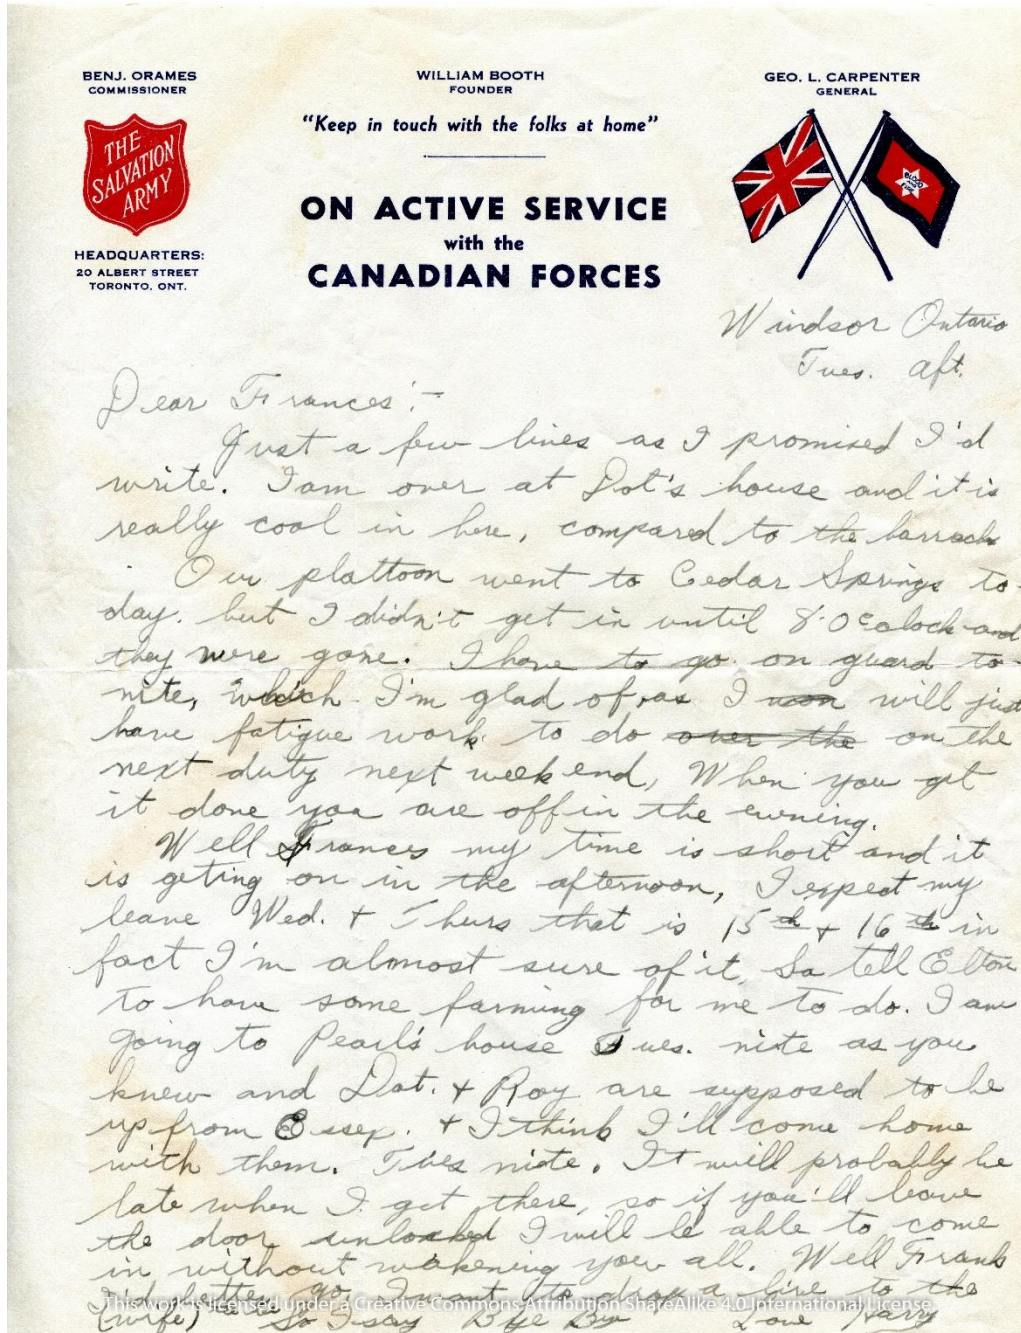 BENJ. ORAMES
COMMISSIONER
WILLIAM BOOTH
FOUNDER
GEO. L. CARPENTER
GENERAL
"Keep in touch with the folks at home"
THE
SALVATION
ARMY
BLOOD
AND
FIRE
ON ACTIVE SERVICE
with the
CANADIAN FORCES
HEADQUARTERS:
20 ALBERT STREET
TORONTO, ONT.
Windsor Ontario
Tues. Aft.
Dear Frances:-
Just a few lines as I promised I'd
write. I am over at Dot's house and it is
really cool in here, compared to the barrack
Our plattoon went to Cedar Springs to-
day. but I didn't get in until 8:0 Cclock and
they were gone. I have to go on guard to-
nite, which I'm glad of, as I will just
have fatigue work to do over the on the
next duty next week end, When you get
it done you are off in the evening.
Well Frances my time is short and it
is geting on in the afternoon, I expect my
leave Wed. + Thurs that is 15th + 16th in
fact I'm almost sure of it. So tell Elton
to have some farming for me to do. I am
going to Pearl's house Tues. nite as you
knew and Dot. + Roy are supposed to be
up from Essex. + I think I'll come home
with them. Tues nite. It will probably be
late when I get there, so if you'll leave
the door unlocked I will be able to come
in without wakening you all. Well Frank
I'd better go. I want to drop a line to the
(wife) So I say Bye Bye Love Harry
This work is licensed under a Creative Commons Attribution ShareAlike 4.0 International License